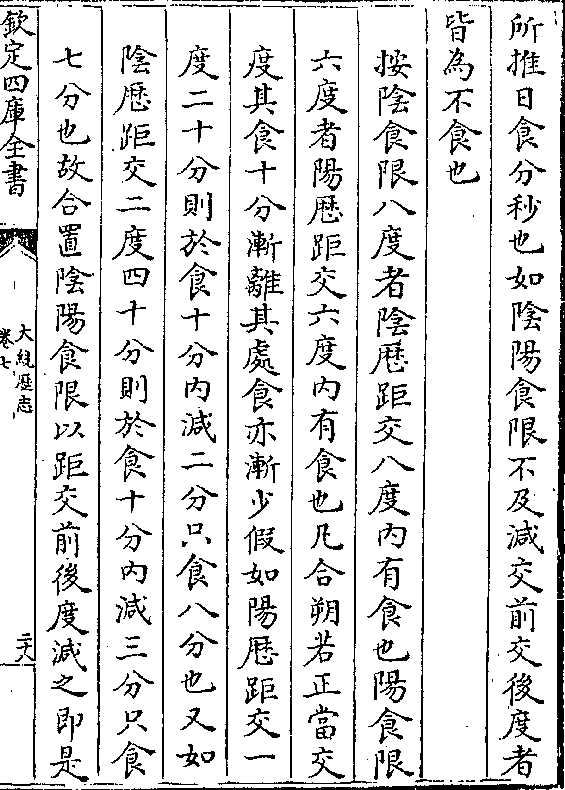 所推日食分秒也如陰陽食限不及減交前交後度者
皆為不食也
按陰食限八度者陰厯距交八度内有食也陽食限
六度者陽厯距交六度内有食也凡合朔若正當交
度其食十分漸離其處食亦漸少假如陽厯距交一
度二十分則於食十分内減二分只食八分也又如
陰厯距交二度四十分則於食十分内減三分只食
七分也故合置陰陽食限以距交前後度減之即是
欽定四庫全書
大統厯志
卷七
二十八